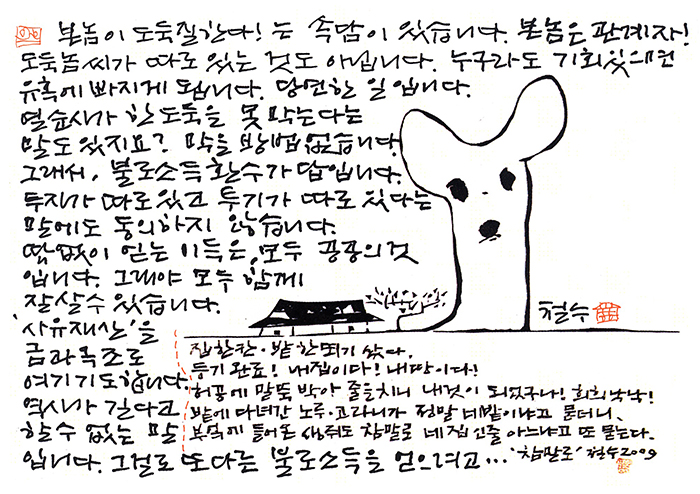 본놈이 도둑질한다! 는 속담이 있습니다. 본놈은 관계자!
도둑놈씨가 따로 있는 것도 아닙니다. 누구라도 기회있으면
유혹에 빠지게 됩니다. 당연한 일입니다.
열순사가 한 도둑을 못 막는다는
말도 있지요? 막을 방법 없습니다.
그래서, 불로소득 환수가 답입니다.
투자가 따로 있고 투기가 따로 있다는
말에도 동의하지 않습니다.
땀 없이 얻는 이득은, 모두 공공의 것
입니다. 그래야 모두 함께
잘살 수 있습니다.
'사유재산'을
금과옥조로
여기기도 합니다.
역사가 길다고
할 수 없는 말
입니다. 그걸로 또 다른 불로소득을 얻으려고...
철수
집 한칸·밭 한뙈기 샀다.
등기 완료! 내집이다! 내땅이다!
허공에 말뚝 박아 줄을 치니 내것이 되었구나! 희희낙낙!
밭에 다녀간 노루·고라니가 정말 네밭이냐고 묻더니,
부엌에 들어온 생쥐도 참말로 네집인줄 아느냐고 또 묻는다.
'참말로' 철수 2009